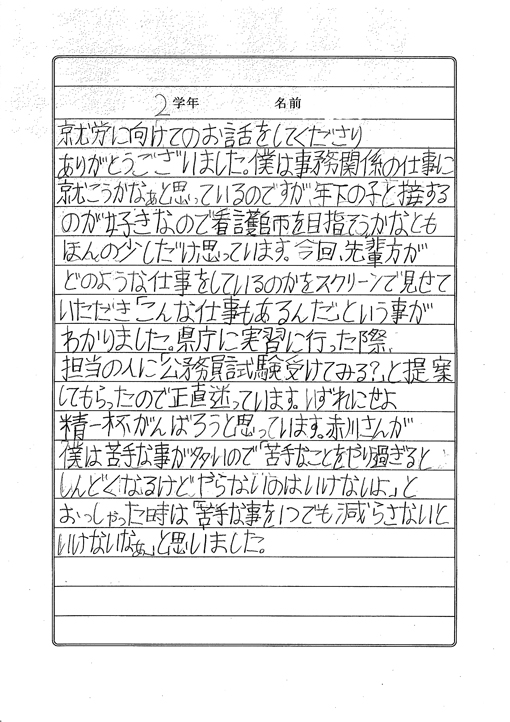 2 学年 名前
就労に向けてのお話をしてくださり
ありがとうございました。僕は事務関係の仕事に
就こうかなぁと思っているのですが、年下の子と接する
のが好きなので看護師を目指そうかなとも
ほんの少しだけ思っています。今回、先輩方が
どのような仕事をしているのかをスクリーンで見せて
いただき「こんな仕事もあるんだ」という事が
わかりました。県庁に実習に行った際、
担当の人に「公務員試験受けてみる?」と提案
してもらったので正直迷っています。いずれにせよ
精一杯がんばろうと思っています。赤川さんが
僕は苦手な事が多いので「苦手なことをやり過ぎると
しんどくなるけどやらないのはいけないよ。」と
おっしゃった時は「苦手な事を1つでも減らさないと
いけないなぁ。」と思いました。